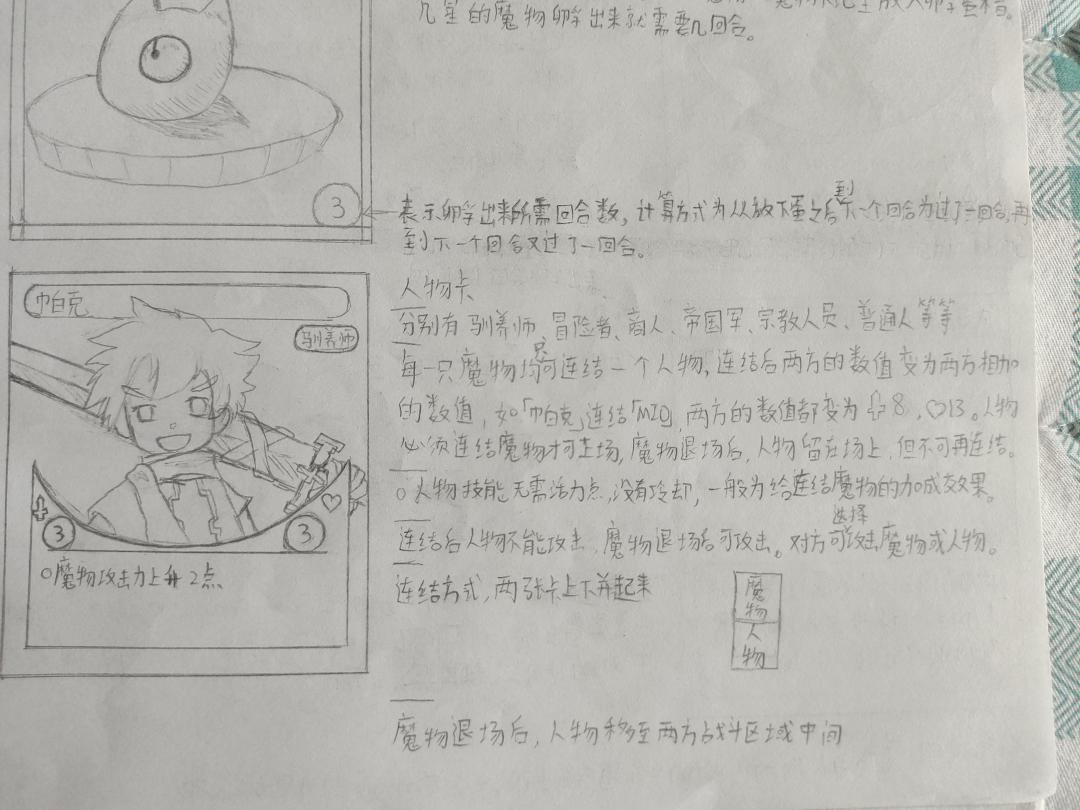 几星的魔物孵出来就需要几回合。
3
表示孵出来所需回合数，计算方式为从放下蛋之后到下一个回合为过了一回合，再
到下一个回合又过了一回合。
人物卡
分别有驯养师、冒险者、商人、帝国军、宗教人员、普通人等等
每一只魔物均只可连结一个人物，连结后两方的数值变为两方相加
的数值，如「帕克」连结「MIO」，两方的数值都变为 8，♡13。人物
必须连结魔物才可上场，魔物退场后，人物留在场上，但不可再连结。
○人物技能无需活力点，没有冷却，一般为给连结魔物的加成效果。
连结后人物不能攻击，魔物退场后可攻击。对方可选择攻击魔物或人物。
连结方式，两张卡上下并起来
魔物
人物
魔物退场后，人物移至两方战斗区域中间
帕克
驯养师
3
♡
3
○魔物攻击力上升2点